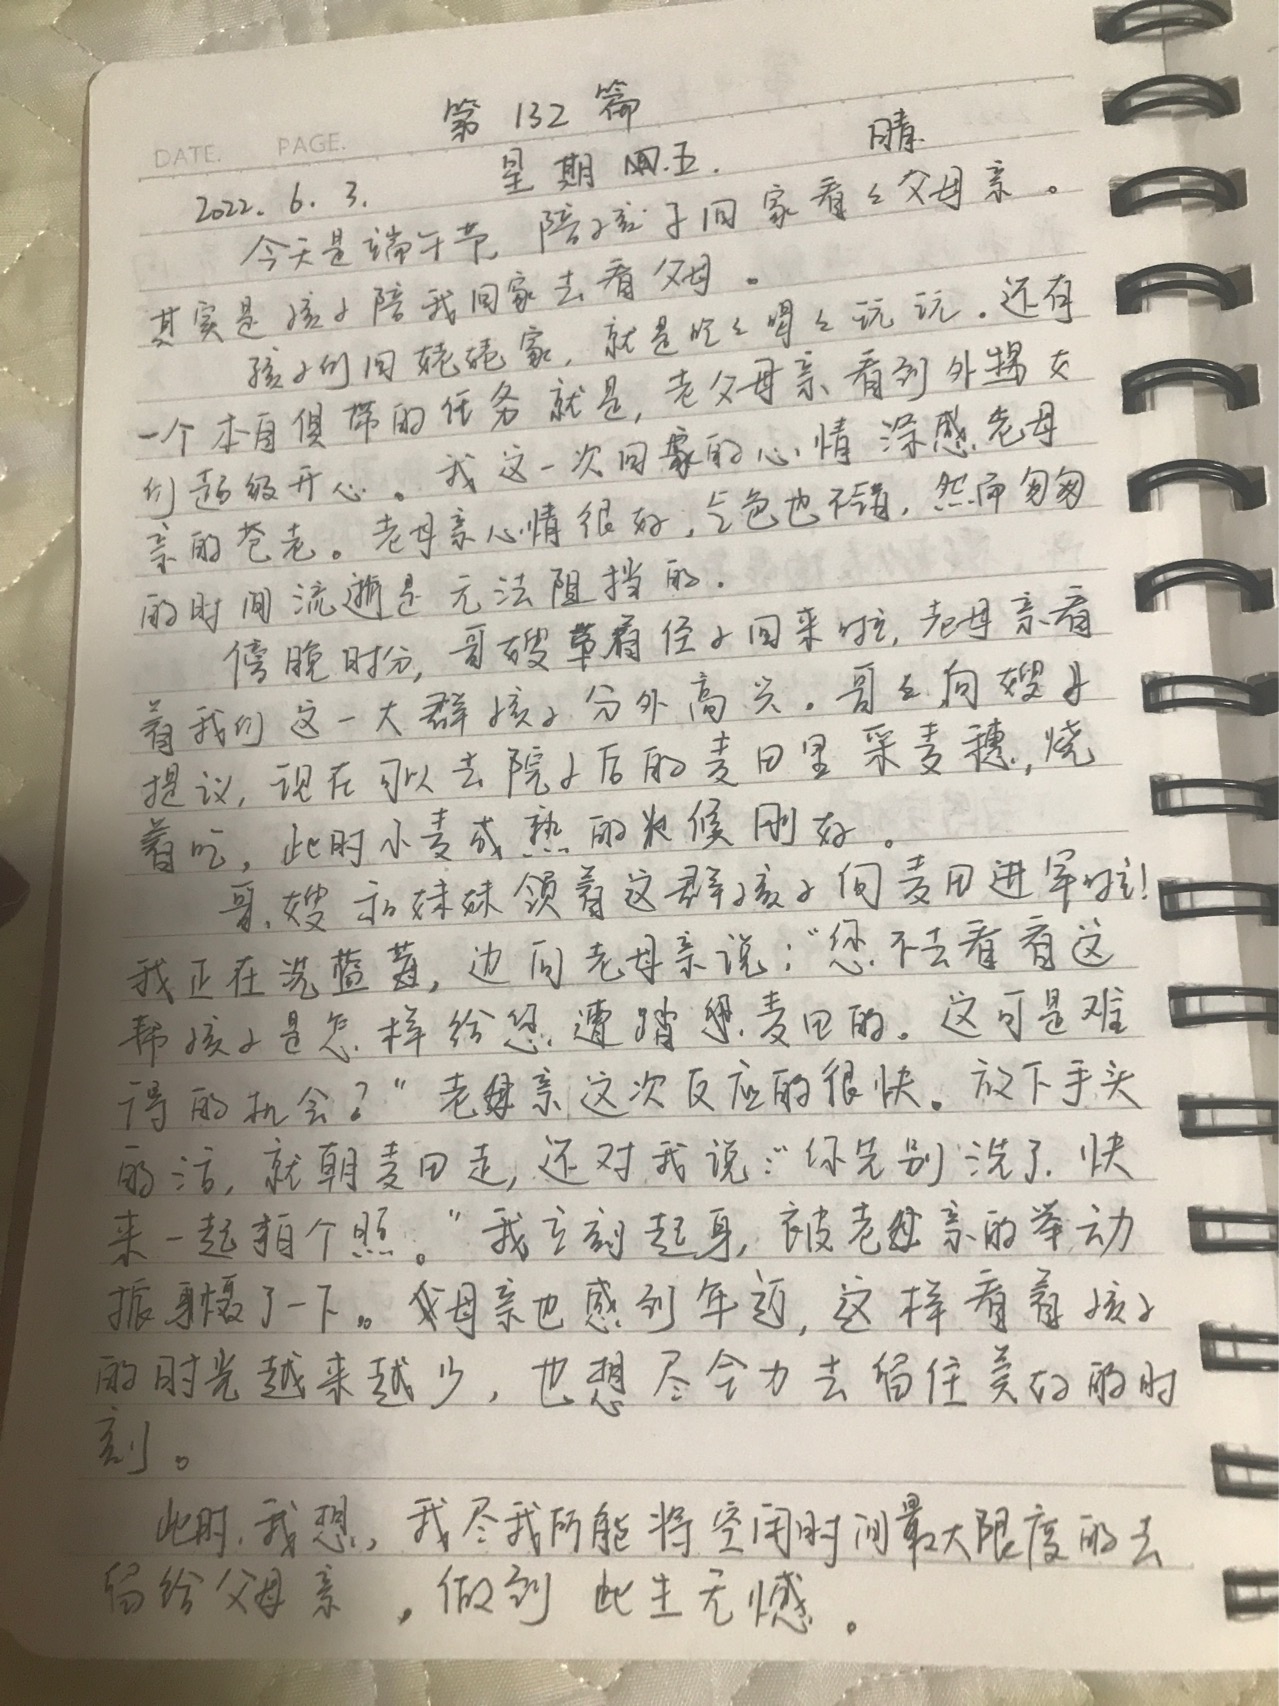 第 132 篇
DATE. PAGE.
2022. 6. 3. 星期五. 晴
今天是端午节 陪孩子回家看々父母亲。
其实是孩子陪我回家去看父母。
孩子们回姥姥家，就是吃々喝々玩玩。还有
一个本自俱带的任务就是，老父母亲看到外甥女
们超级开心。我这一次回家的心情深感老母
亲的苍老。老母亲心情很好，气色也不错，然而匆匆
的时间流逝是无法阻挡的.
傍晚时分，哥嫂带着侄子回来啦，老母亲看
着我们这一大群孩子分外高兴。哥々向嫂子
提议，现在可以去院子后的麦田里采麦穗，烧
着吃，此时小麦成熟的火候刚好。
哥.嫂和妹妹领着这群孩子向麦田进军啦!
我正在洗蓝莓，边向老母亲说："您不去看看这
帮孩子是怎样给您遭踏您麦田的。这可是难
得的机会？"老母亲这次反应的很快。放下手头
的活，就朝麦田走，还对我说："你先别洗了.快
来一起拍个照。"我立刻起身，被老母亲的举动
振慑了一下。父母亲也感到年迈，这样看着孩子
的时光越来越少，也想尽全力去留住美好的时
刻。
此时.我想，我尽我所能将空闲时间最大限度的去
留给父母亲，做到 此生无憾。